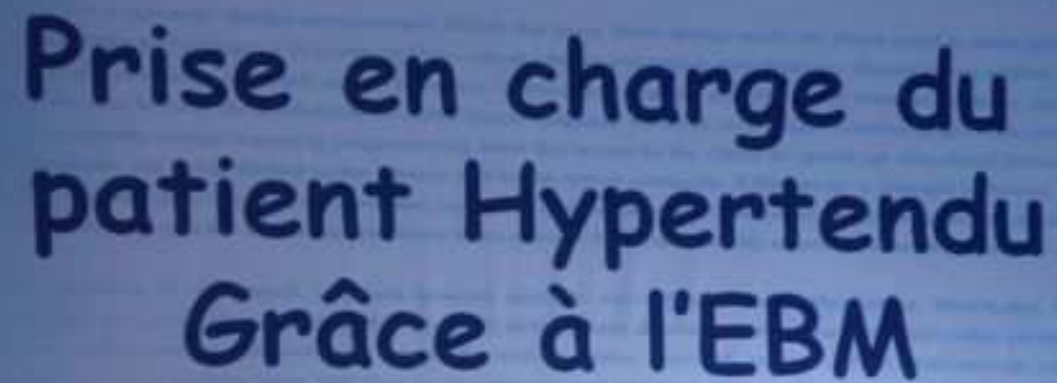 Prise en charge du
patient Hypertendu
Grâce à l'EBM